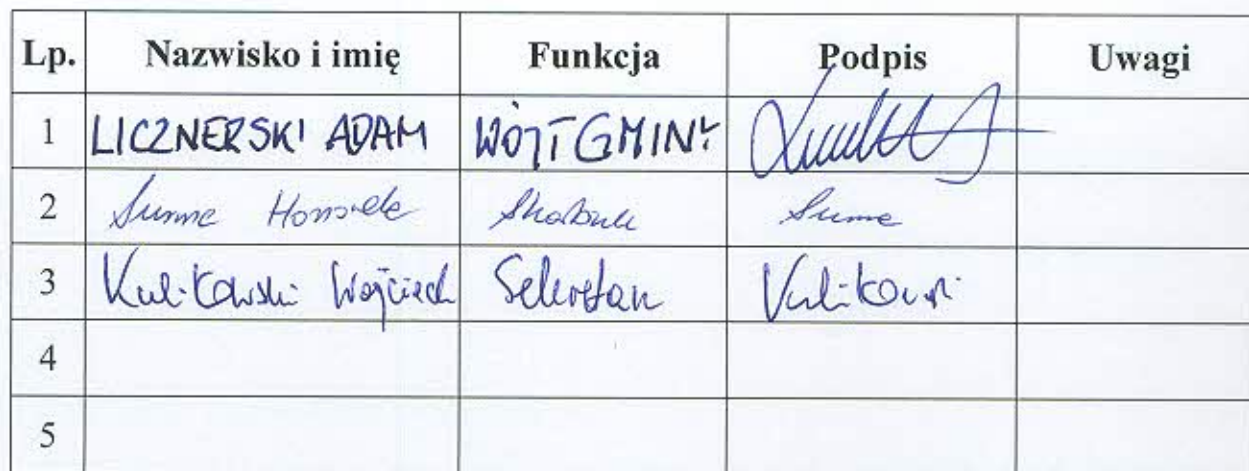 Lp. Nazwisko i imię Funkcja Podpis Uwagi
1 LICZNERSKI ADAM WÓJT GMINY
2 Skarbnik
3 Kulikowski Wojciech Sekretarz Kulikowski
4
5